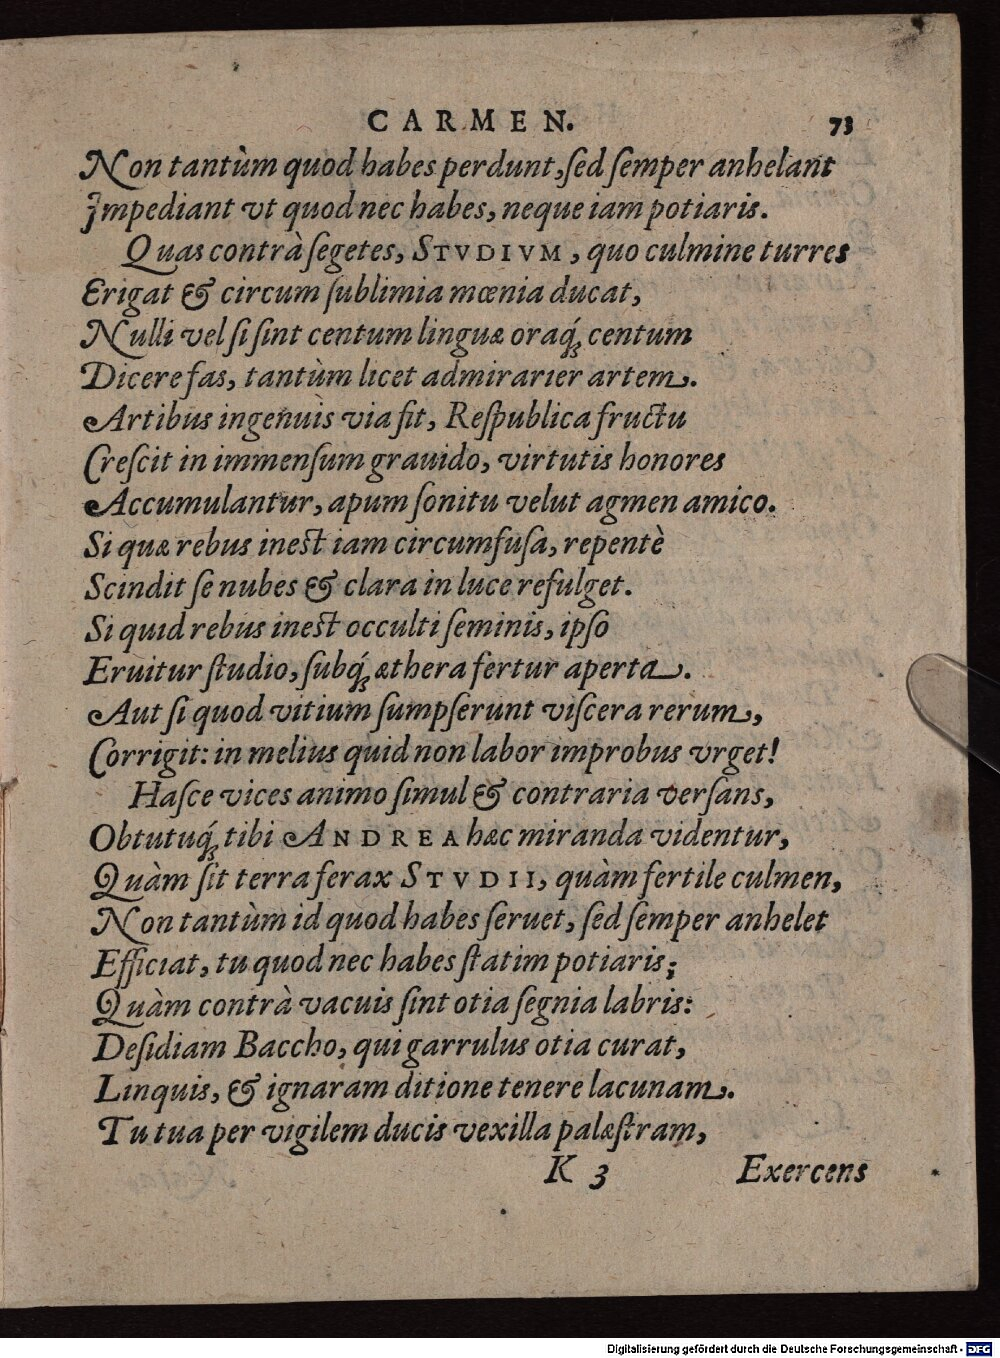 CARMEN. 73
Non tantùm quod habes perdunt, ſed ſemper anhelant
Jmpediant vt quod nec habes, neque iam potiaris.
Quas contrà ſegetes, STVDIVM, quo culmine turres
Erigat & circum ſublimia mœnia ducat,
Nulli vel ſi ſint centum linguæ oraq́; centum
Dicere fas, tantùm licet admirarier artem.
Artibus ingenuis via fit, Reſpublica fructu
Creſcit in immenſum grauido, virtutis honores
Accumulantur, apum ſonitu velut agmen amico.
Si quæ rebus ineſt iam circumfuſa, repentè
Scindit ſe nubes & clara in luce refulget.
Si quid rebus ineſt occulti ſeminis, ipſo
Eruitur ſtudio, ſubq́; æthera fertur aperta.
Aut ſi quod vitium ſumpſerunt viſcera rerum,
Corrigit: in melius quid non labor improbus vrget!
Haſce vices animo ſimul & contraria verſans,
Obtutuq́; tibi ANDREA hæc miranda videntur,
Quàm ſit terra ferax STVDII, quàm fertile culmen,
Non tantùm id quod habes ſeruet, ſed ſemper anhelet
Efficiat, tu quod nec habes ſtatim potiaris;
Quàm contrà vacuis ſint otia ſegnia labris:
Deſidiam Baccho, qui garrulus otia curat,
Linquis, & ignaram ditione tenere lacunam.
Tu tua per vigilem ducis vexilla palæſtram,
K 3 Exercens
Digitalisierung gefördert durch die Deutsche Forschungsgemeinschaft - DFG